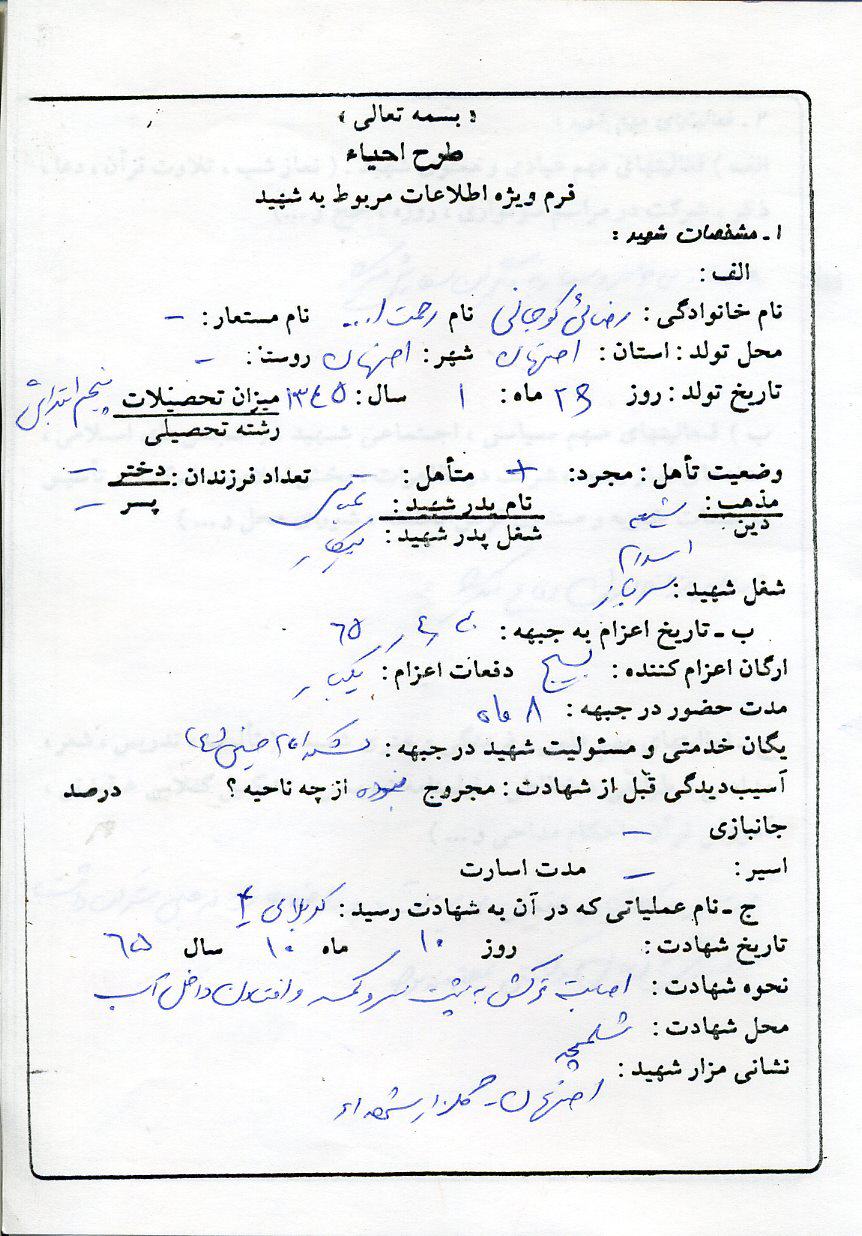 « بسمه تعالی »
طرح احیاء
فرم ویژه اطلاعات مربوط به شهید
۱ ـ مشخصات شهید :
الف :
نام خانوادگی : رضائی کوجانی نام رحمت ا... نام مستعار : –
محل تولد : استان : اصفهان شهر : اصفهان روستا : –
تاریخ تولد : روز ۲۹ ماه : ۱ سال : ۱۳۴۵ میزان تحصیلات پنجم ابتدائی
رشته تحصیلی
وضعیت تأهل : مجرد : + متأهل : – تعداد فرزندان : دختر –
مذهب : شیعه نام پدر شهید : پسر –
دین اسلام شغل پدر شهید :
شغل شهید : سرباز
ب ـ تاریخ اعزام به جبهه : ۶۵/۴/
ارگان اعزام کننده : بسیج دفعات اعزام : یکبار
مدت حضور در جبهه : ۸ ماه
یگان خدمتی و مسئولیت شهید در جبهه :
آسیب‌دیدگی قبل از شهادت : مجروح نبوده از چه ناحیه ؟ درصد
جانبازی –
اسیر : – مدت اسارت
ج ـ نام عملیاتی که در آن به شهادت رسید : کربلای ۴
تاریخ شهادت : روز ۱۰ ماه ۱۰ سال ۶۵
نحوه شهادت : اصابت ترکش به پشت سر و کمر و افتادن داخل آب
محل شهادت : شلمچه
نشانی مزار شهید :
اصفهان – گلزار شهداء